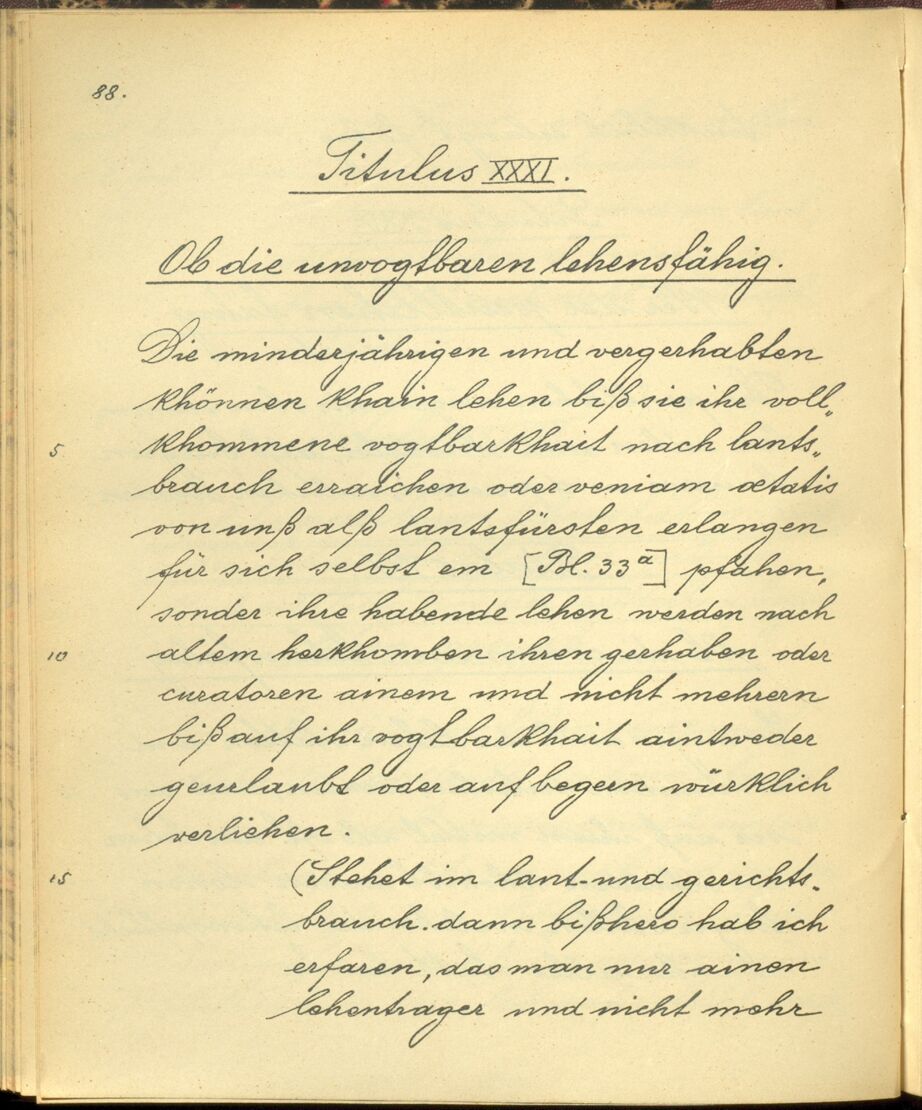 88.
Titulus XXXI.
Ob die unvogtbaren lehensfähig.
Die minderjährigen und vergerhabten
khönnen khain lehen biß sie ihr voll„
5 khommene vogtbarkhait nach lants„
brauch erraichen oder veniam ætatis
von unß alß lantsfürsten erlangen
für sich selbst em [Bl. 33a] pfahen,
sonder ihre habende lehen werden nach
10 altem herkhomben ihren gerhaben oder
curatoren ainem und nicht mehrern
biß auf ihr vogtbarkhait aintweder
geurlaubt oder auf begern würklich
verlichen.
15 (Stehet im lant- und gerichts-
brauch. dann bißhero hab ich
erfaren, das man nur ainen
lehentrager und nicht mehr